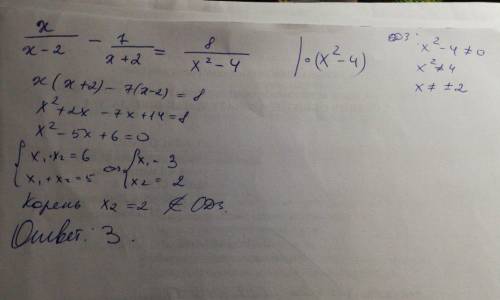 x/(x-2) - 7/(x+2) = 8/(x²-4) | · (x²-4)
ОДЗ: x²-4≠0
x²≠4
x≠±2
x(x+2) - 7(x-2) = 8
x²+2x-7x+14=8
x²-5x+6=0
{x₁·x₂=6
x₁+x₂=5 {x₁=3
x₂=2
Корень x₂=2 ∉ ОДЗ.
Ответ: 3.